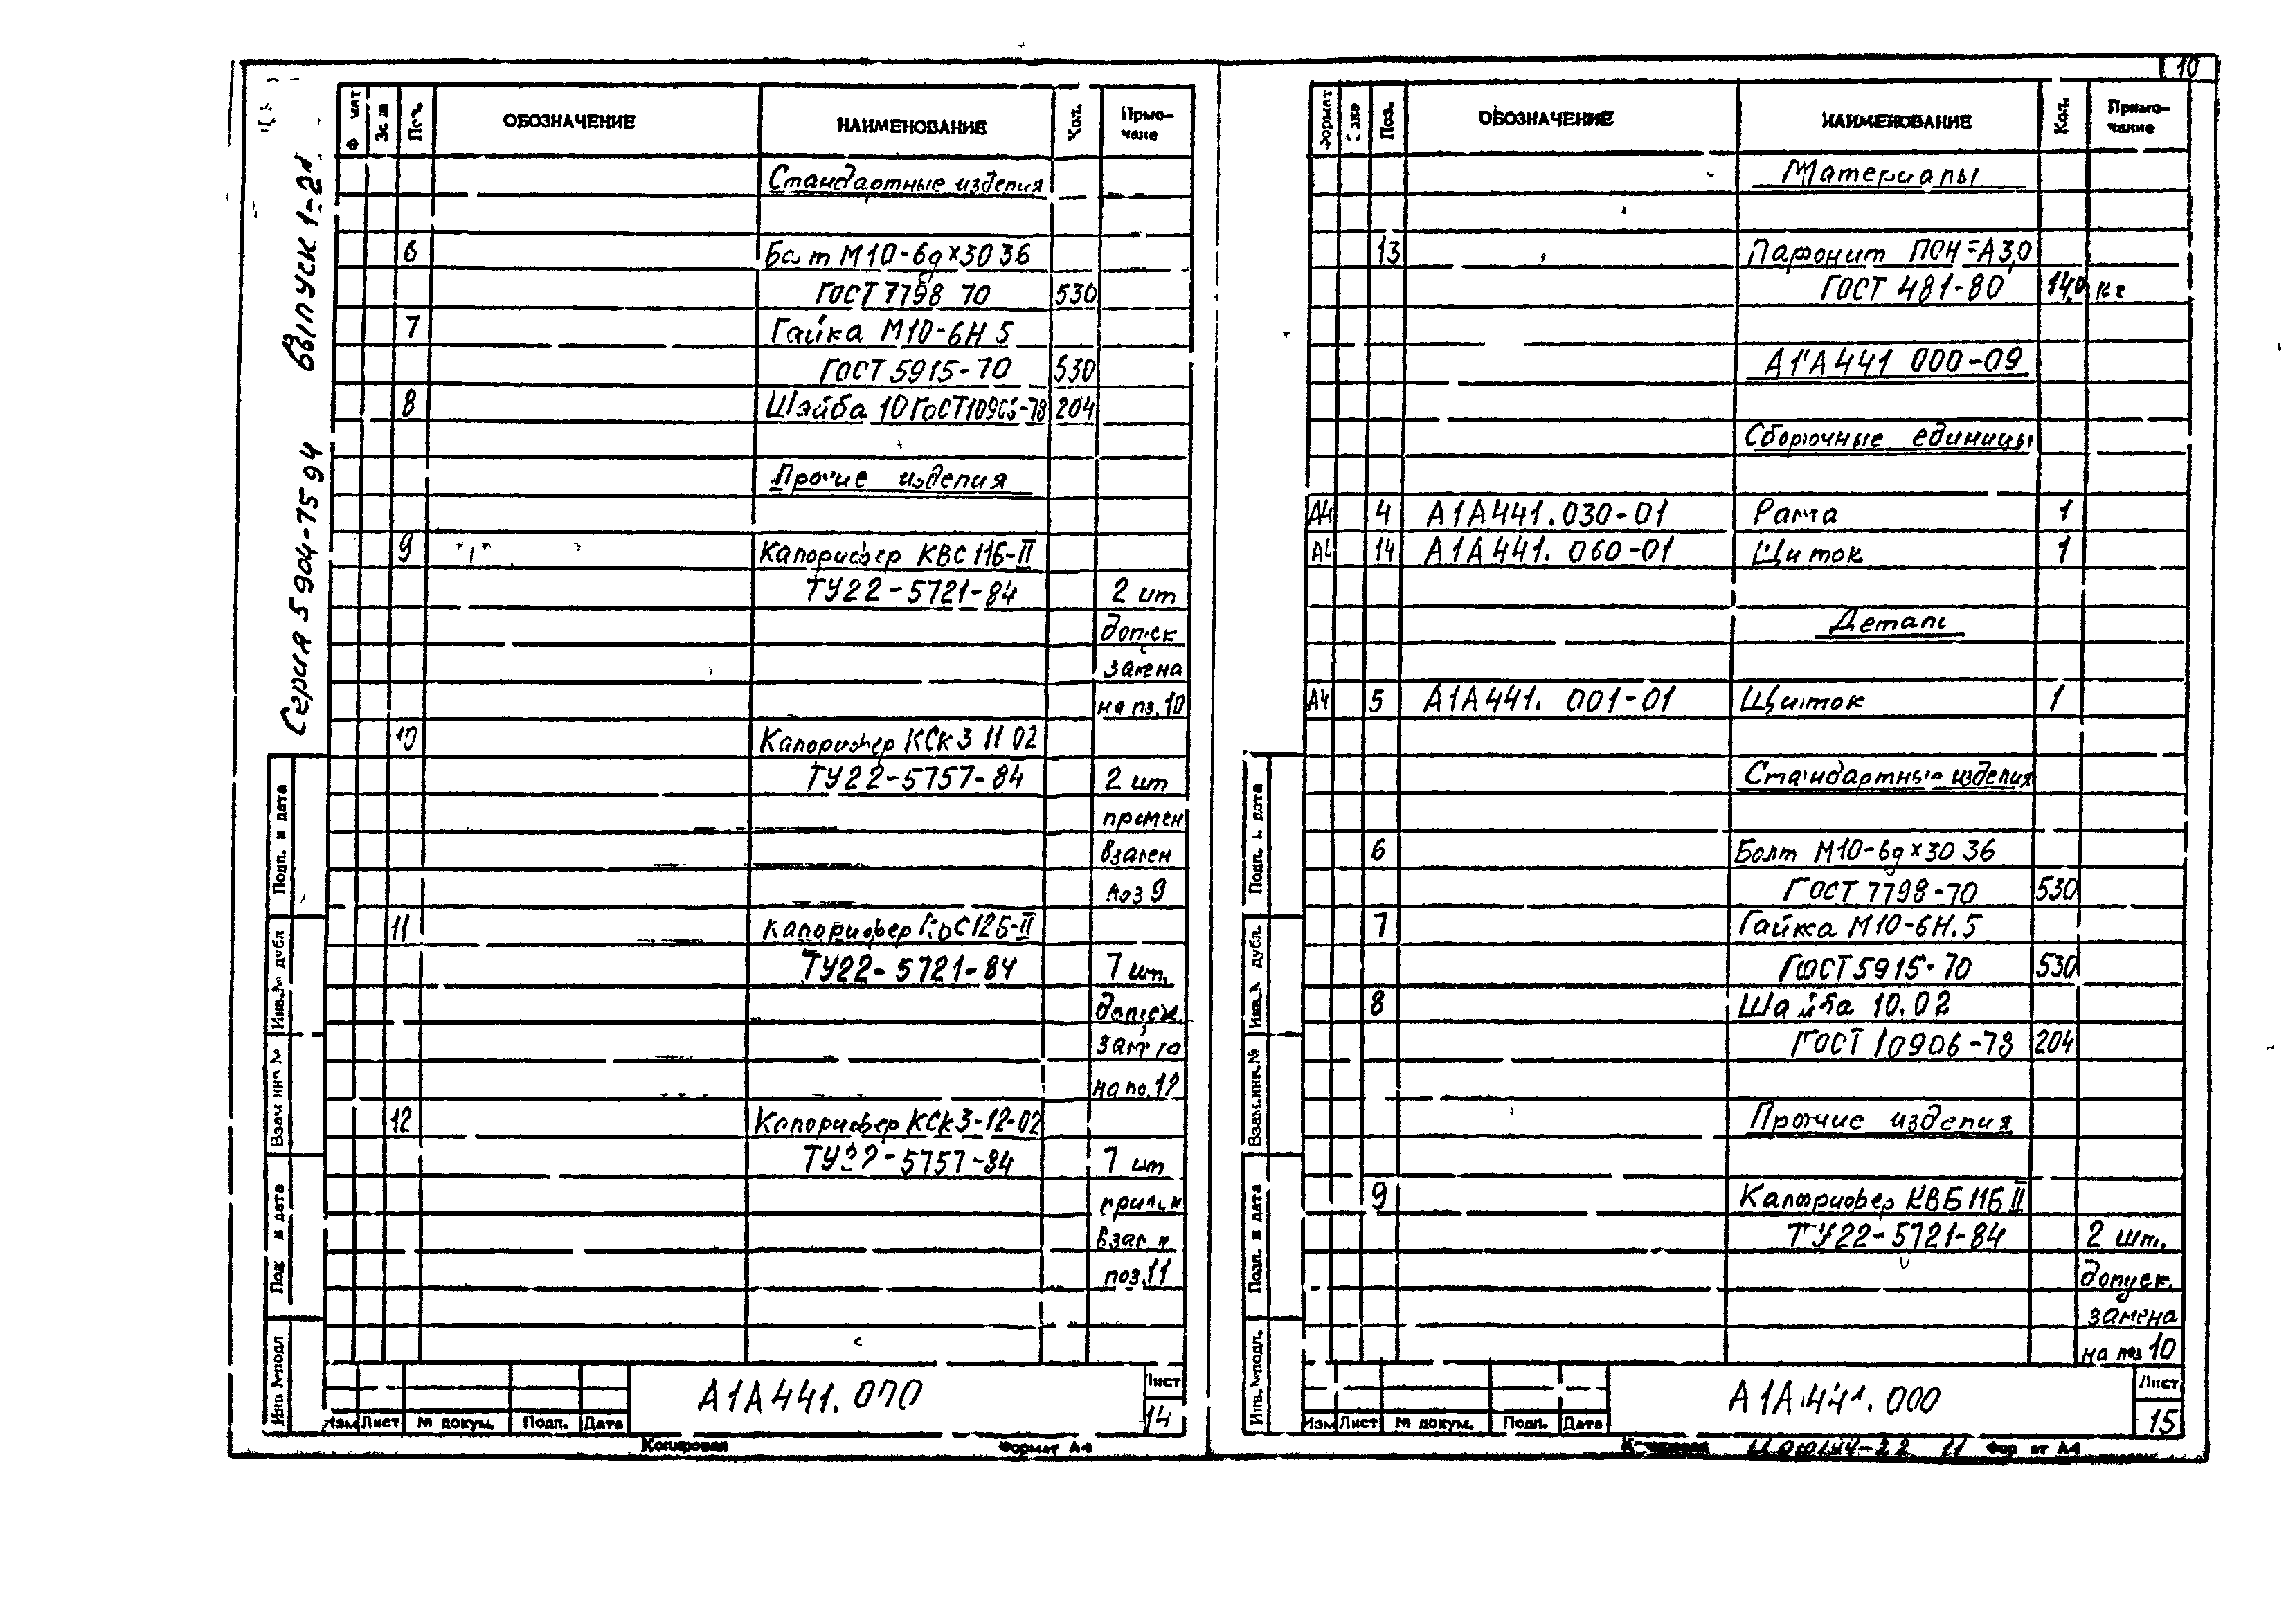 10
Серия 5 904-75 94 Выпуск 1-21
Поз. ОБОЗНАЧЕНИЕ НАИМЕНОВАНИЕ Кол.
Стандартные изделия
6 Болт М10-6g×30 36
ГОСТ 7798 70 530
7 Гайка М10-6Н 5
ГОСТ 5915-70 530
8 Шайба 10 ГОСТ10906-78 204
Прочие изделия
9 Калорифер КВС 11Б-II
ТУ22-5721-84 2 шт
допуск
замена
на пз. 10
10 Калорифер КСк 3 11 02
ТУ22-5757-84 2 шт
примен
взамен
поз 9
11 Калорифер 12Б-II
ТУ22-5721-84 7 шт.
допуск
на по. 12
12 Калорифер КСк 3-12-02
ТУ22-5757-84 7 шт
поз. 11
Подп. и дата
Инв.№ дубл
Взам инв №
Под и дата
Инв №подл
Изм Лист № докум. Подп. Дата
А1А441.000
Лист
14
Копировал Формат А4
Формат Поз. ОБОЗНАЧЕНИЕ НАИМЕНОВАНИЕ Кол. Примечание
Материалы
13 Паронит ПОН-А 3,0
ГОСТ 481-80 14,0 кг
А1А441 000-09
Сборочные единицы
А4 4 А1А441.030-01 Рама 1
А4 14 А1А441. 060-01 Щиток 1
Детали
А4 5 А1А441. 001-01 Щиток 1
Стандартные изделия
6 Болт М10-6g×30 36
ГОСТ 7798-70 530
7 Гайка М10-6Н.5
ГОСТ 5915-70 530
8 Шайба 10.02
ГОСТ 10906-78 204
Прочие изделия
9 Калорифер КВБ 11Б II
ТУ22-5721-84 2 шт.
допуск.
замена
на поз 10
Подп. и дата
Инв.№ дубл.
Взам.инв.№
Подп. и дата
Инв.№подл.
Изм Лист № докум. Подп. Дата
А1А441.000
Лист
15
11 А4